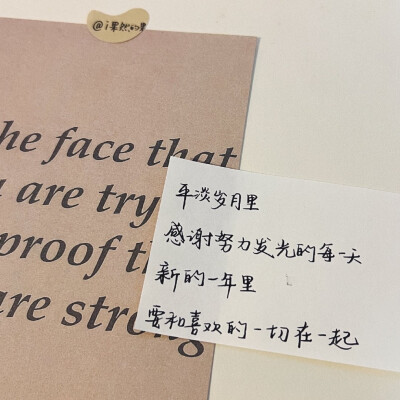 @i果然的
he face that
are try
proof th
are strong
平淡岁月里
感谢努力发光的每一天
新的一年里
要和喜欢的一切在一起